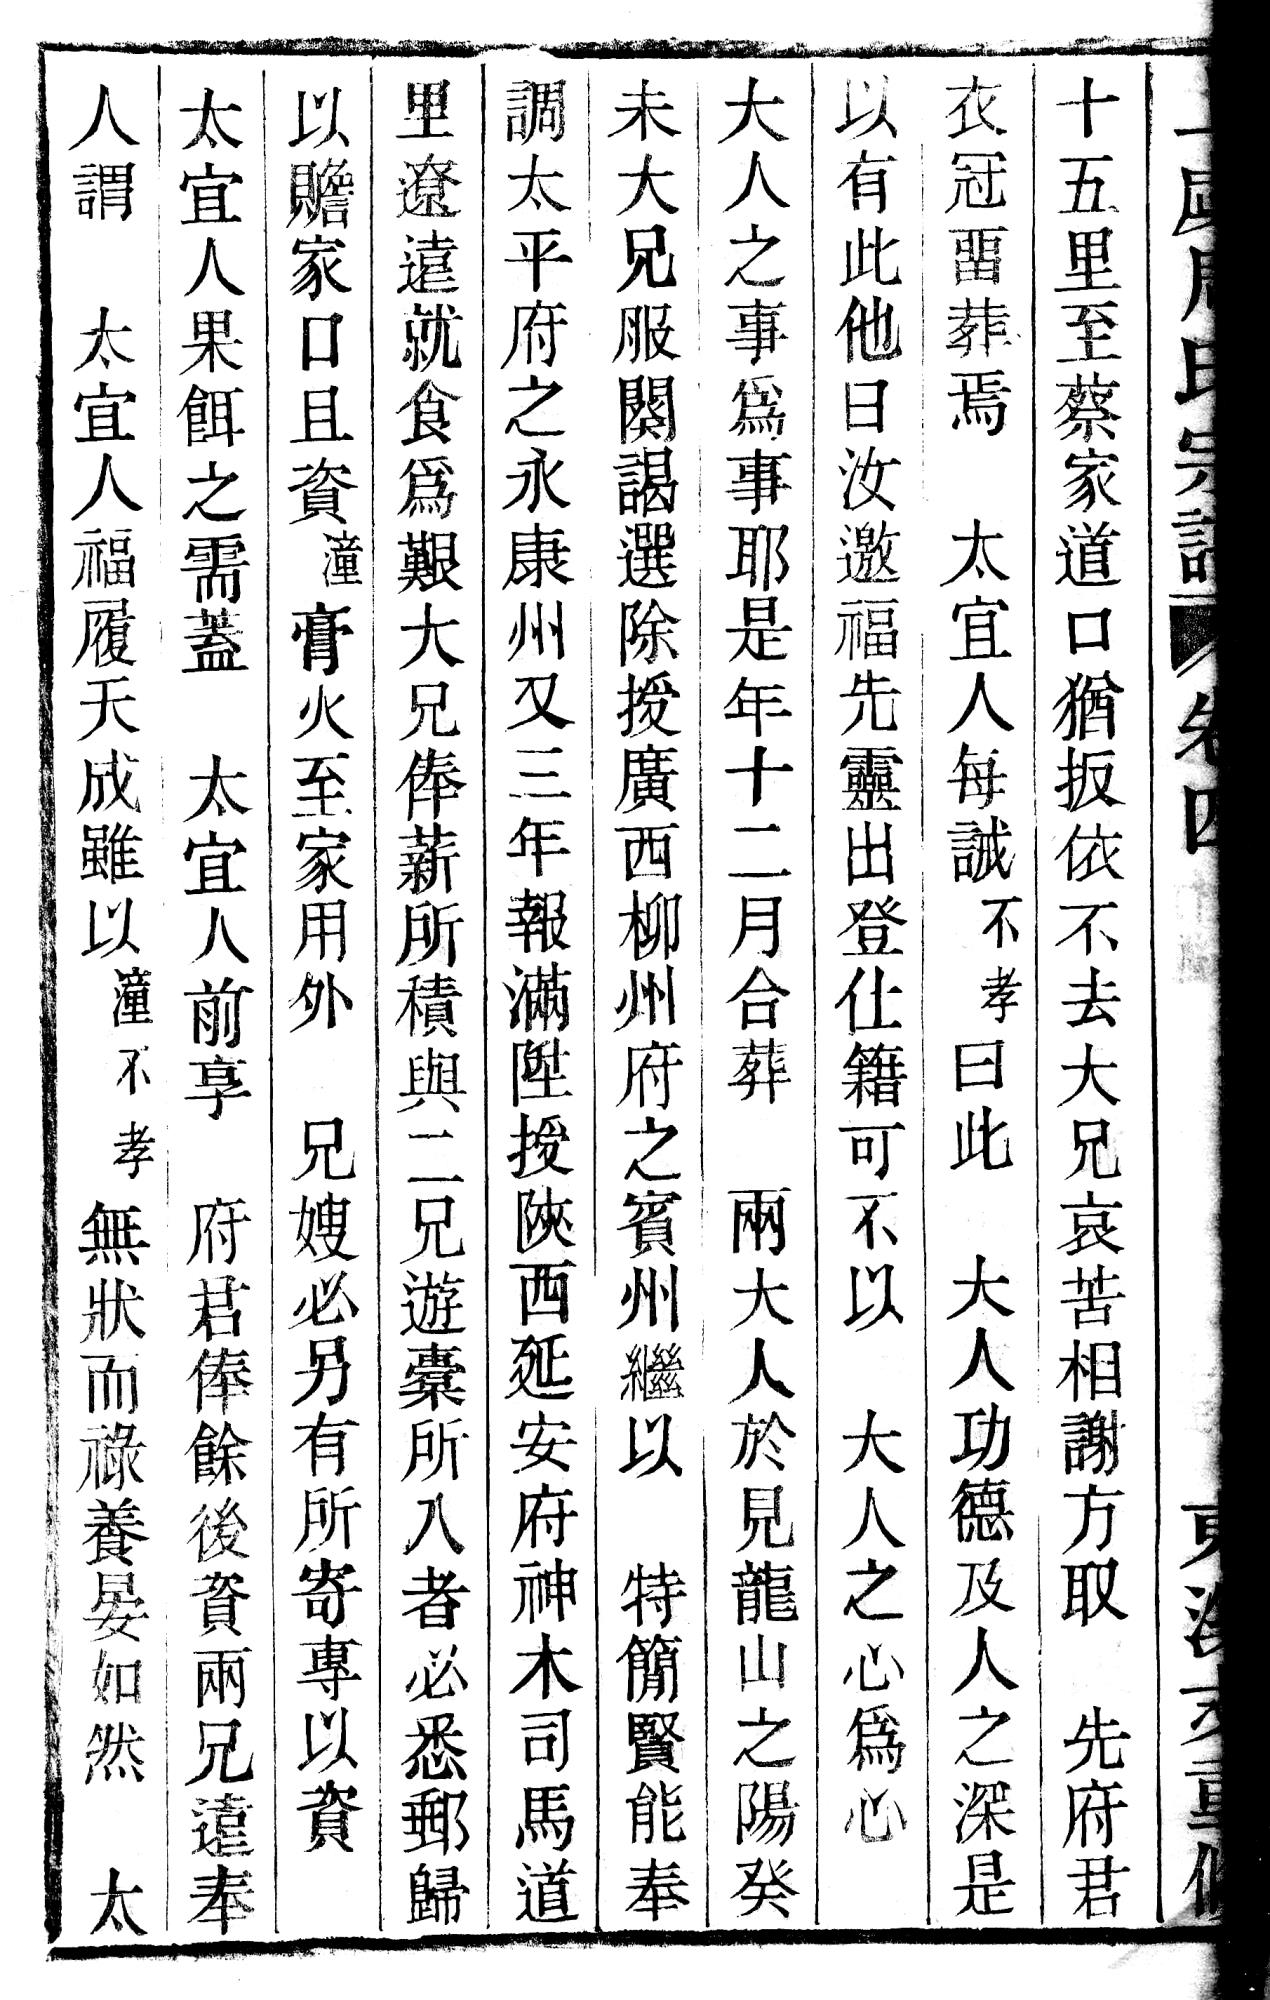 氏宗譜 卷四
十五里至蔡家道口猶扳依不去大兄哀苦相謝方取　先府君
衣冠畱葬焉　太宜人每誡不孝曰此　大人功德及人之深是
以有此他日汝邀福先靈出登仕籍可不以　大人之心爲心
大人之事爲事耶是年十二月合葬　兩大人於見龍山之陽癸
未大兄服闋謁選除授廣西柳州府之賓州繼以　特簡賢能奉
調太平府之永康州又三年報滿陞授陝西延安府神木司馬道
里遼遠就食爲艱大兄俸薪所積與二兄遊橐所入者必悉郵歸
以贍家口且資潼膏火至家用外　兄嫂必另有所寄專以資
太宜人果餌之需蓋　太宜人前享　府君俸餘後資兩兄遠奉
人謂　太宜人福履天成雖以潼不孝無狀而祿養晏如然　太